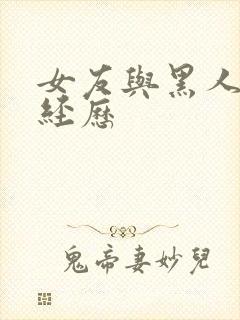 女友與黑人
經歷
鬼帝妻妙兒